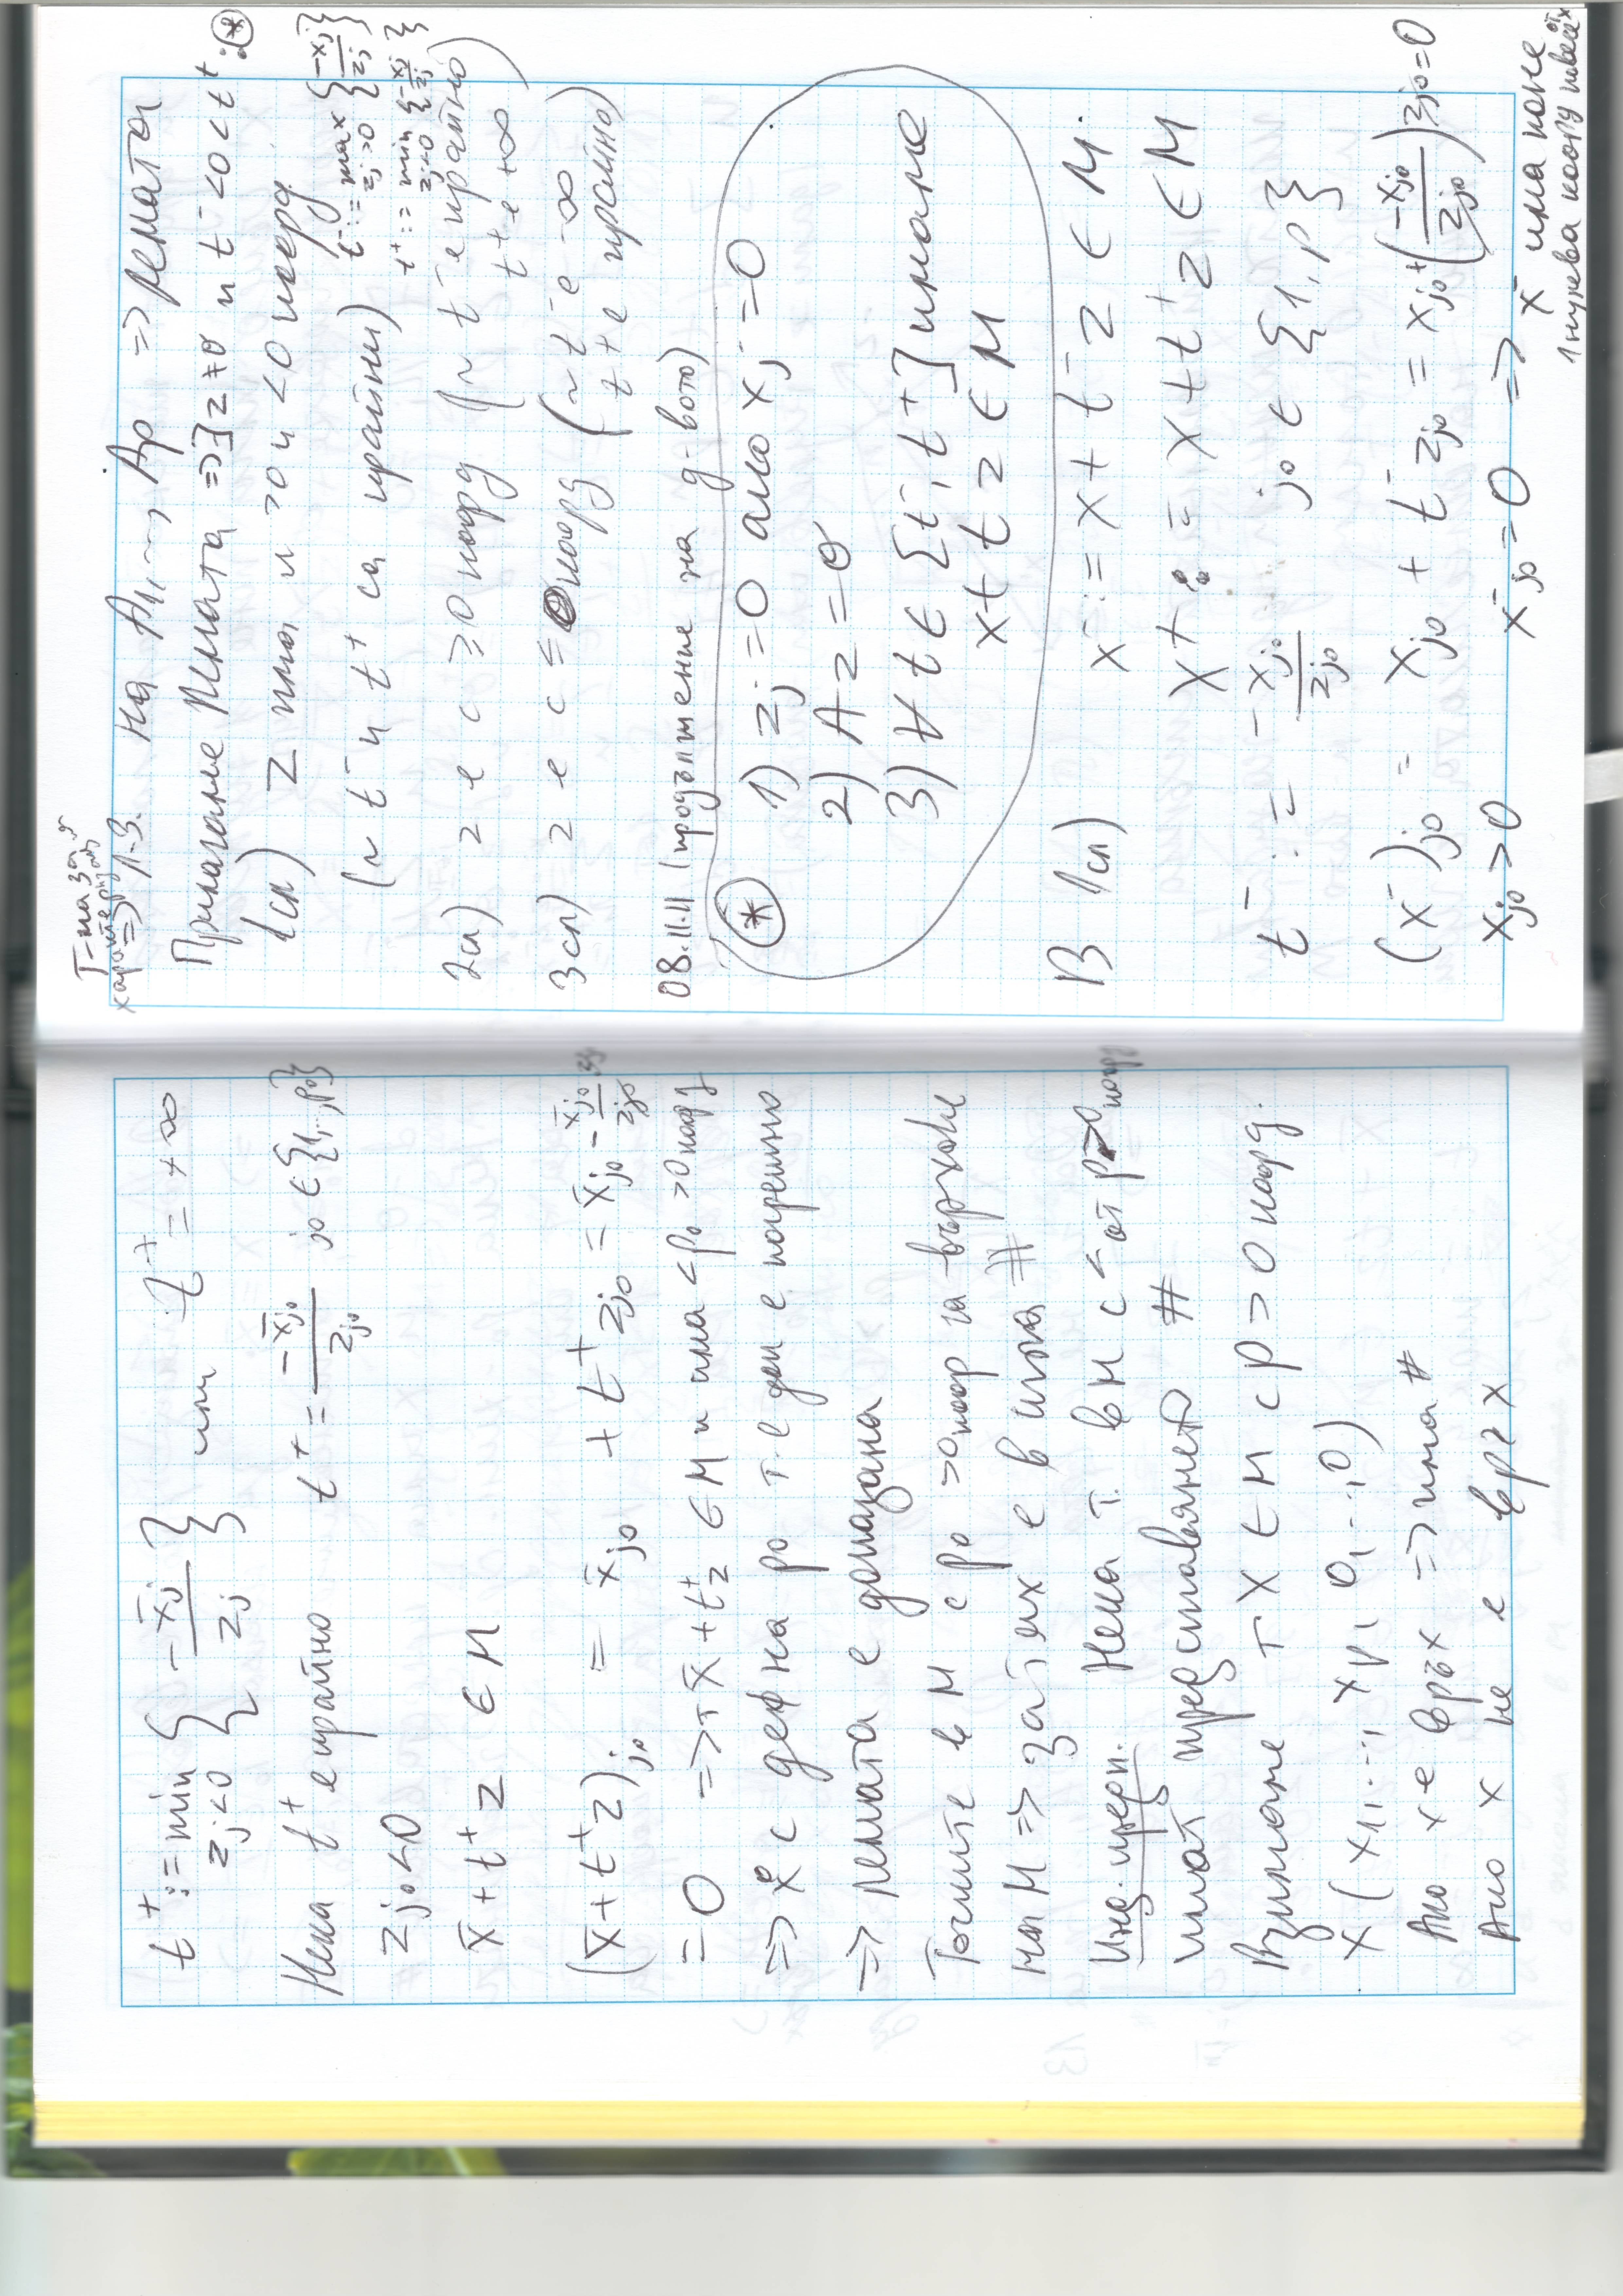 t⁺ := min { -x̄j / zj } или t⁺ = +∞
zj<0
Нека t⁺ е крайно t⁺ = -x̄j₀ / zj₀ j₀ ∈ {1,..,p₀}
zj₀<0
x̄ + t⁺ z ∈ M
(x̄ + t⁺z)j₀ = x̄j₀ + t⁺ zj₀ = x̄j₀ - x̄j₀ / zj₀
= 0 => т x̄ + t⁺z ∈ M и има < p₀ >0 коорд
=> x с деф на p₀ т.е. доп е погрешно
=> лемата е доказана
Точките в M с p₀ >0 коор са върхове
на M => за тях е в сила #
Инд. предп. Нека т. в M с < от p >0 коорд
имат представянето #
Взимаме т x ∈ M с p >0 коорд.
x (x₁,..., xp, 0,...,0)
Ако x е връх => има #
Ако x не е връх
Т-ма за
характериз
=> ЛЗ. на A₁, ..., Ap => лемата
Прилагане лемата => ∃ z ≠ 0 и t⁻ < 0 < t⁺ : ⊛
1сл) z има и >0 и <0 коорд
t⁻ := max { -xj / zj }
zj>0
(~ t⁻ и t⁺ са крайни)
t⁺ := min { -xj / zj }
zj<0
2сл) z е с ≥ 0 коорд (~ t⁻ е крайно
t⁺ е +∞ )
3сл) z е с ≤ 0 коорд (~ t⁻ е -∞
t⁺ е крайно)
08.11.11 (продължение на д-вото)
⊛ 1) zj = 0 ако xj = 0
2) Az = 0
3) ∀ t ∈ [t⁻, t⁺] имаме
x + t z ∈ M
В 1сл) x⁻ := x + t⁻ z ∈ M.
x⁺ := x + t⁺ z ∈ M
t⁻ := - xj₀ / zj₀ j₀ ∈ {1, p}
(x⁻)j₀ = xj₀ + t⁻ zj₀ = xj₀ + (-xj₀ / zj₀) zj₀ = 0
xj₀ > 0 x⁻j₀ = 0 => x⁻ има поне
1 нулева коорд повече от x